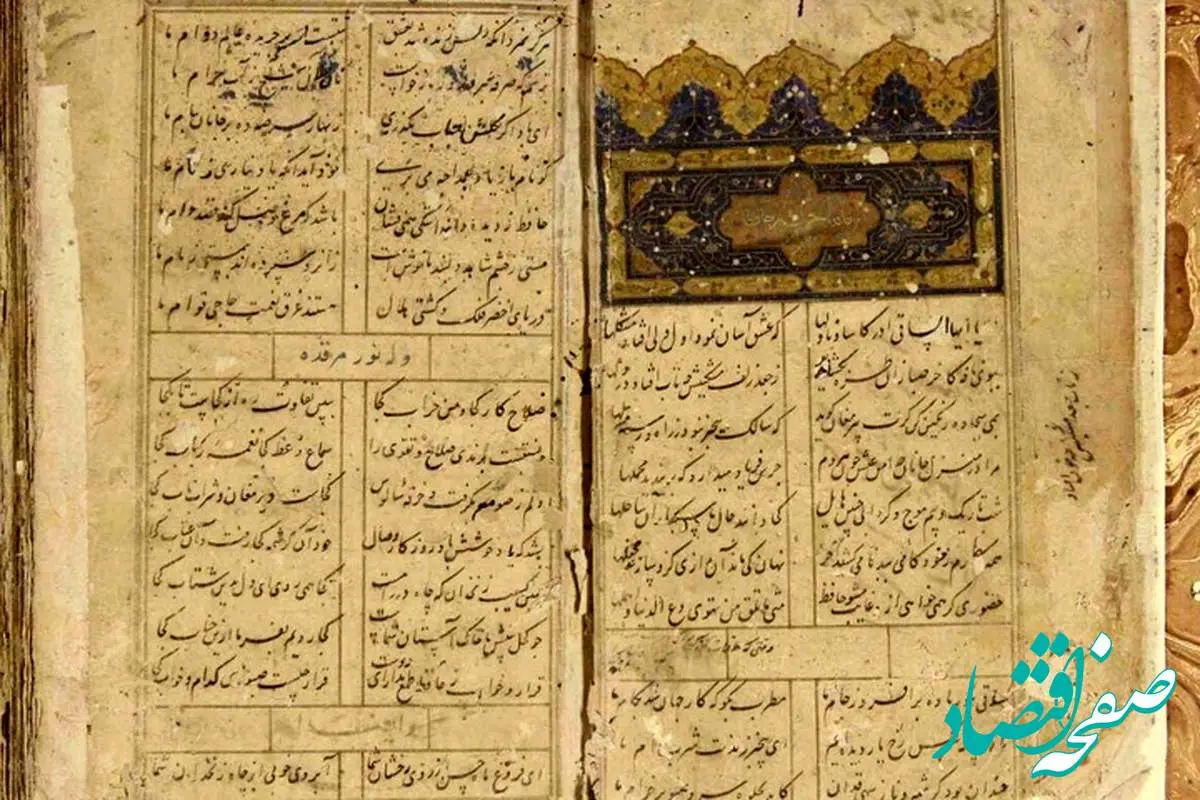 الا یا ایها الساقی ادر کاسا و ناولها که عشق آسان نمود اول ولی افتاد مشکلها
ببوی نافه کاخر صبا زان طره بگشاید ز جعد زلف مشکینش چه تاب افتاد در دلها
بمی سجاده رنگین کن گرت پیر مغان گوید که سالک بیخبر نبود ز راه و رسم منزلها
مرا در منزل جانان چه امن عیش چون هر دم جرس فریاد میدارد که بربندید محملها
شب تاریک و بیم موج و گردابی چنین هایل کجا دانند حال ما سبکباران ساحلها
همه کارم ز خود کامی به بدنامی کشید آخر نهان کی ماند آن رازی کزو سازند محفلها
حضوری گر همی خواهی ازو غایب مشو حافظ متی ما تلق من تهوی دع الدنیا و
ساقی بنور باده برافروز جام ما مطرب بگو که کار جهان شد بکام ما
عکس رخ یار دیده ایم ای بیخبر ز لذت شرب مدام ما
چندان بود کرشمه و ناز سهی قدان کاید بجلوه سرو صنوبر خرام ما
هرگز نمیرد آنکه دلش زنده شد بعشق ثبت است بر جریده عالم دوام ما
ترسم که صرفه نبرد روز بازخواست نان حلال شیخ ز آب حرام ما
ای باد اگر بگلشن احباب بگذری زنهار عرضه ده بر جانان پیام ما
گو نام ما ز یاد بعمدا چه می بری خود آید آنکه یاد نیاری ز نام ما
حافظ ز دیده دانه اشکی همی فشان باشد که مرغ وصل کند قصد دام ما
مستی بچشم شاهد دلبند ما خوش است زانرو سپرده اند بمستی زمام ما
دریای اخضر فلک و کشتی هلال هستند غرق نعمت حاجی قوام ما
وله نور مرقده
صلاح کار کجا و من خراب کجا ببین تفاوت ره از کجاست تا بکجا
چه نسبت است برندی صلاح و تقوی را سماع وعظ کجا نغمه رباب کجا
دلم ز صومعه بگرفت و خرقه سالوس کجاست دیر مغان و شراب ناب کجا
بشد که یاد خوشش باد روزگار وصال خود آن کرشمه کجا رفت و آن عتاب کجا
مبین بسیب زنخدان که چاه در راهست کجا همی روی ای دل بدین شتاب کجا
چو کحل بینش ما خاک آستان شماست کجا رویم بفرما ازین جناب کجا
قرار و خواب ز حافظ طمع مدار ای دوست قرار چیست صبوری کدام و خواب کجا
ای فروغ ماه حسن از روی رخشان شما آبروی خوبی از چاه زنخدان شما
صفحه اقتصاد